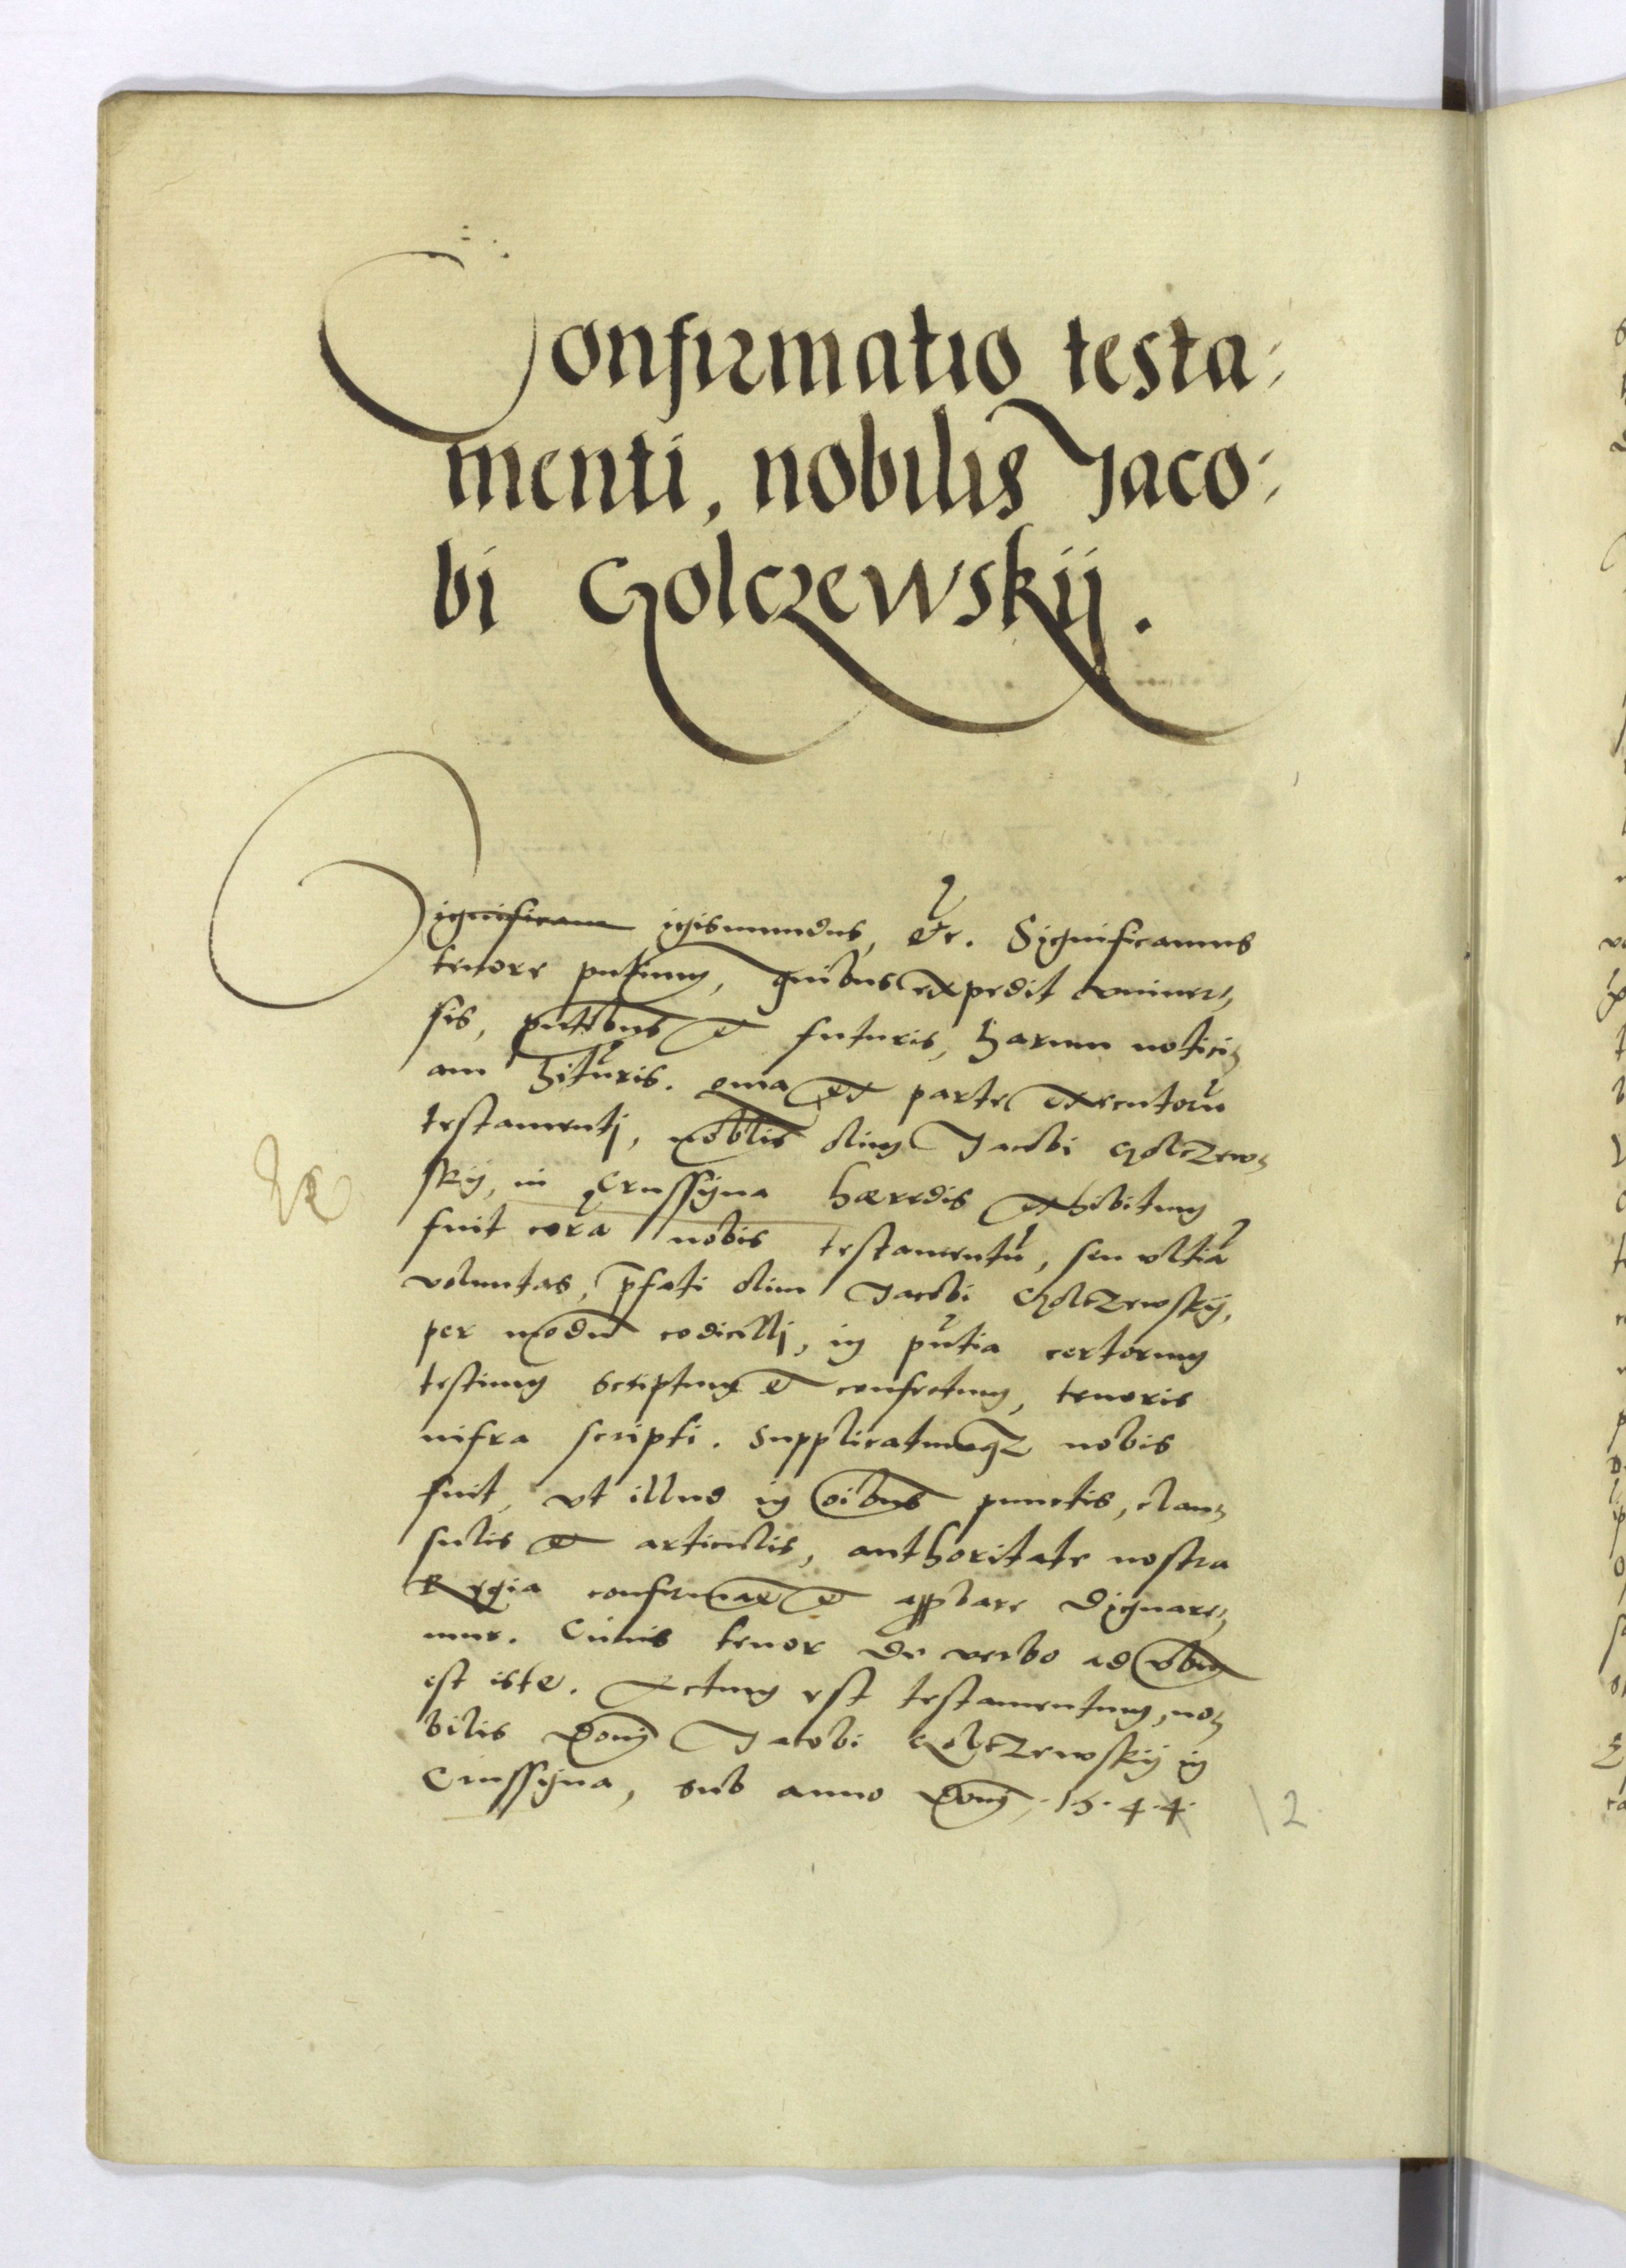 Confirmatio testa:
menti, nobilis Jaco:
bi Golczewskij.
Significam igismundus, etc. Significamus
tenore pntium, quibus expedit vniuer,,
sis, pntibus et futuris, harum notici,
am hituris. quia ex parte executorũ
testamentj, noblis olim Jacobi Golczew,
skij, in Crussyna hæredis exhibitum
fuit corã nobis testamentũ, seu vltiã
voluntas, p̄fati olim Jacobi Golczewskij,
per modũ codicillj, in pñtia certorum
testium scriptum et confectum, tenoris
infra scripti. Supplicatumqz nobis
fuit, vt illud in oibus punctis, clau,
sulis et articulis, authoritate nostra
Regia confirmare et approbare dignare,,
mur. Cuius tenor de verbo ad vbum
est iste. Actum est testamentum, no,
bilis Domĩ Jacobi Golczewskij in
Crussyna, sub anno Domĩ, 1.5.4.4.
12